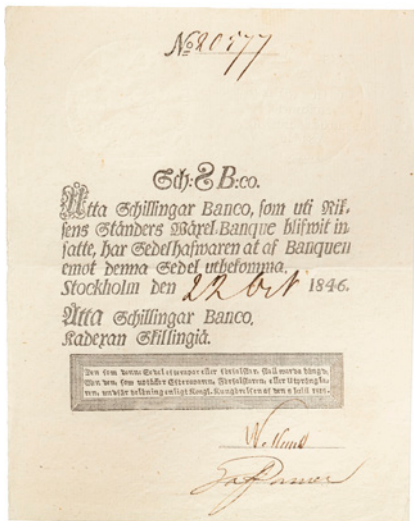 No 20577
Sch: 8 B:co.
Åtta Schillingar Banco, som uti Rik-
sens Ständers Wäxel-Banque blifwit in-
satte, har Sedelhafwaren at af Banquen
emot denna Sedel utbekomma.
Stockholm den 22 Oct 1846.
Åtta Schillingar Banco.
Kadexan Skillingiä.
Den som denne Sedel efterapar eller förfalskar, skall warda hängd;
Men den, som uptäcker Efteraparen, Förfalskaren, eller Utprångla-
ren, undfår belöning enligt Kongl. Kungörelsen af den